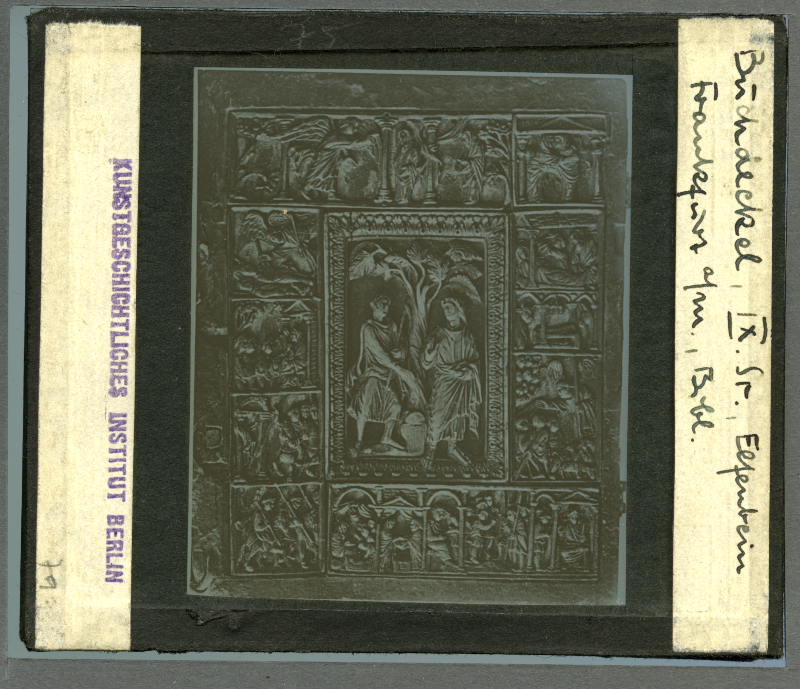 KUNSTGESCHICHTLICHES INSTITUT BERLIN
Buchdeckel, IX. Jr., Elfenbein
Frankfurt a/m., Bibl.